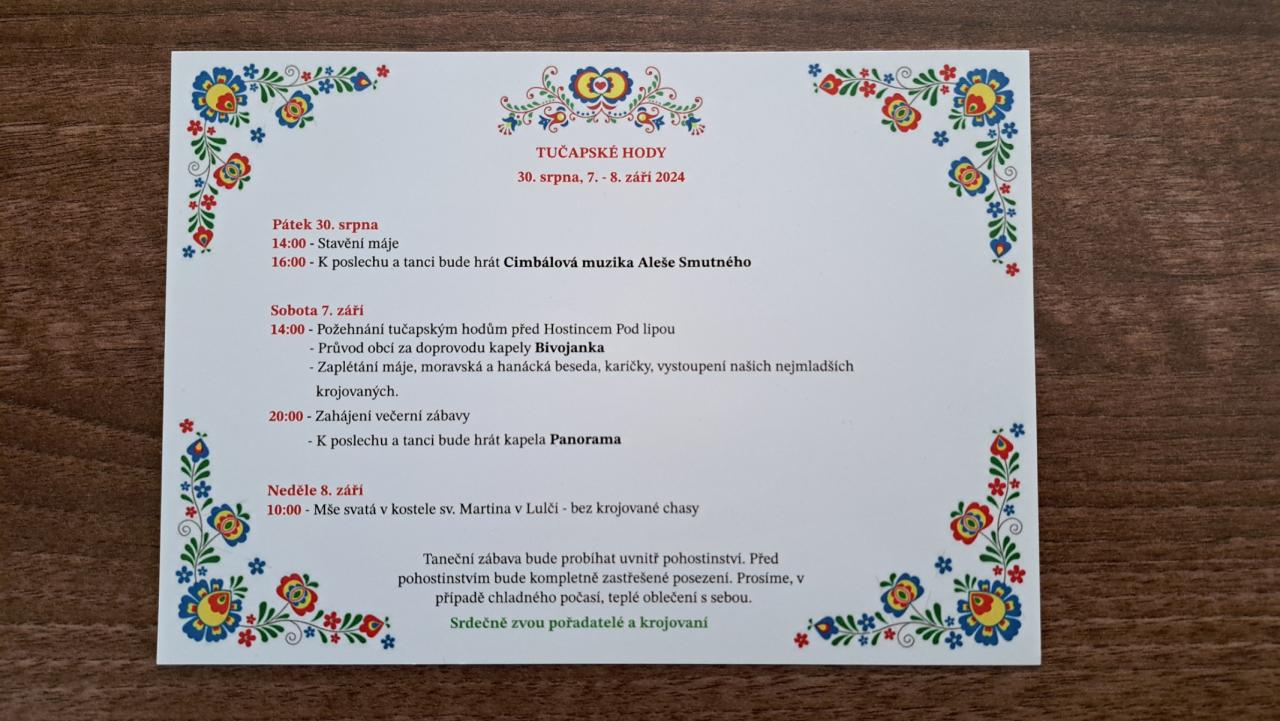 TUČAPSKÉ HODY
30. srpna, 7. - 8. září 2024
Pátek 30. srpna
14:00 - Stavění máje
16:00 - K poslechu a tanci bude hrát Cimbálová muzika Aleše Smutného
Sobota 7. září
14:00 - Požehnání tučapským hodům před Hostincem Pod lipou
- Průvod obcí za doprovodu kapely Bivojanka
- Zaplétání máje, moravská a hanácká beseda, karičky, vystoupení našich nejmladších
krojovaných.
20:00 - Zahájení večerní zábavy
- K poslechu a tanci bude hrát kapela Panorama
Neděle 8. září
10:00 - Mše svatá v kostele sv. Martina v Lulči - bez krojované chasy
Taneční zábava bude probíhat uvnitř pohostinství. Před
pohostinstvím bude kompletně zastřešené posezení. Prosíme, v
případě chladného počasí, teplé oblečení s sebou.
Srdečně zvou pořadatelé a krojovaní